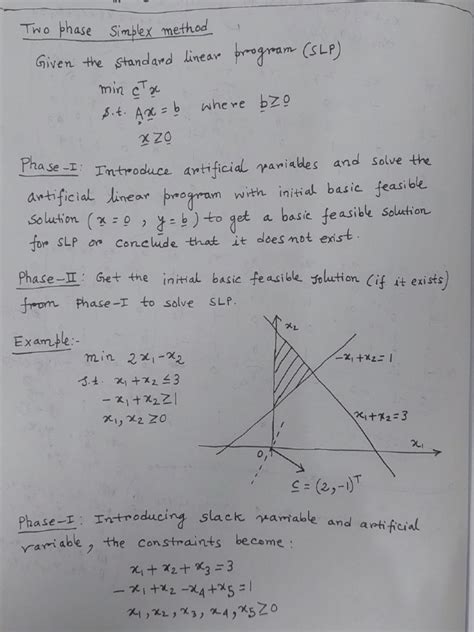 Two phase simplex method
Given the standard linear program (SLP)
min c^T x
s.t. Ax = b where b ≥ 0
x ≥ 0
Phase-I: Introduce artificial variables and solve the
artificial linear program with initial basic feasible
solution (x = 0, y = b) to get a basic feasible solution
for SLP or conclude that it does not exist.
Phase-II: Get the initial basic feasible solution (if it exists)
from Phase-I to solve SLP.
Example:-
min 2x₁-x₂
s.t. x₁+x₂≤3
-x₁+x₂≥1
x₁,x₂≥0
x₂
-x₁+x₂=1
x₁+x₂=3
x₁
0
c = (2,-1)^T
Phase-I: Introducing slack variable and artificial
variable, the constraints become:
x₁+x₂+x₃=3
-x₁+x₂-x₄+x₅=1
x₁,x₂,x₃,x₄,x₅≥0